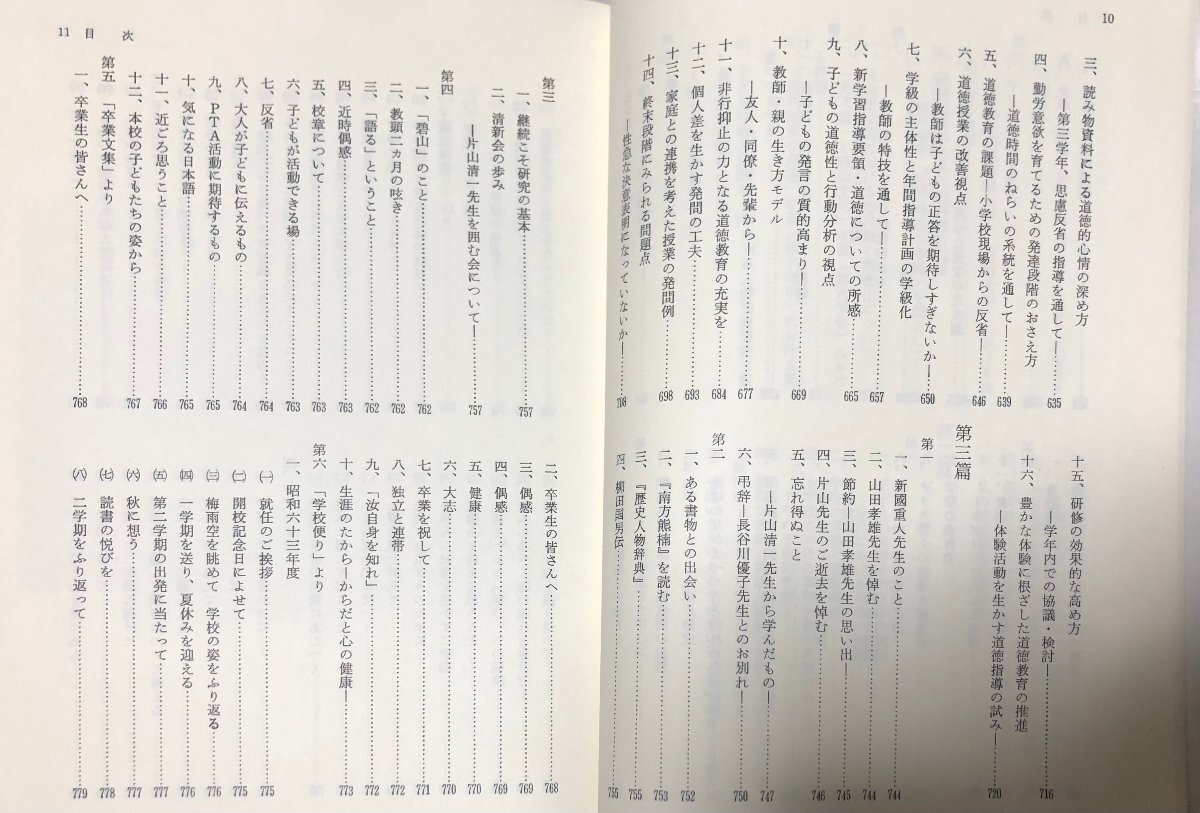 10
三、読み物資料による道徳的心情の深め方
―第三学年、思慮反省の指導を通して―……635
四、勤労意欲を育てるための発達段階のおさえ方
―道徳時間のねらいの系統を通して―……639
五、道徳教育の課題―小学校現場からの反省―……646
六、道徳授業の改善視点
―教師は子どもの正答を期待しすぎないか―……650
七、学級の主体性と年間指導計画の学級化
―教師の特技を通して―……657
八、新学習指導要領・道徳についての所感……665
九、子どもの道徳性と行動分析の視点
―子どもの発言の質的高まり―……669
十、教師・親の生き方モデル
―友人・同僚・先輩から―……677
十一、非行抑止の力となる道徳教育の充実を……684
十二、個人差を生かす発問の工夫……693
十三、家庭との連携を考えた授業の発問例……698
十四、終末段階にみられる問題点
―性急な決意表明になっていないか―……708
十五、研修の効果的な高め方
―学年内での協議・検討―……716
十六、豊かな体験に根ざした道徳教育の推進
―体験活動を生かす道徳指導の試み―……720
第三篇
第一
一、新國重人先生のこと……744
二、山田孝雄先生を悼む……744
三、節約―山田孝雄先生の思い出―……745
四、片山先生のご逝去を悼む……746
五、忘れ得ぬこと
―片山清一先生から学んだもの―……747
六、弔辞―長谷川優子先生とのお別れ―……750
第二
一、ある書物との出会い……752
二、『南方熊楠』を読む……753
三、『歴史人物辞典』……755
四、柳田國男伝……755
11 目 次
第三
一、継続こそ研究の基本……757
二、清新会の歩み
―片山清一先生を囲む会について―……757
第四
一、「碧山」のこと……762
二、教頭二ヵ月の呟き……762
三、「語る」ということ……762
四、近時偶感……763
五、校章について……763
六、子どもが活動できる場……763
七、反省……764
八、大人が子どもに伝えるもの……764
九、PTA活動に期待するもの……765
十、気になる日本語……765
十一、近ごろ思うこと……766
十二、本校の子どもたちの姿から……767
第五 「卒業文集」より
一、卒業生の皆さんへ……768
二、卒業生の皆さんへ……768
三、偶感……769
四、偶感……769
五、健康……770
六、大志……770
七、卒業を祝して……771
八、独立と連帯……772
九、「汝自身を知れ」……772
十、生涯のたから―からだと心の健康―……773
第六 「学校便り」より
一、昭和六十三年度
㈠ 就任のご挨拶……775
㈡ 開校記念日によせて……775
㈢ 梅雨空を眺めて 学校の姿をふり返る……776
㈣ 一学期を送り、夏休みを迎える……776
㈤ 第二学期の出発に当たって……777
㈥ 秋に想う……777
㈦ 読書の悦びを……778
㈧ 二学期をふり返って……779